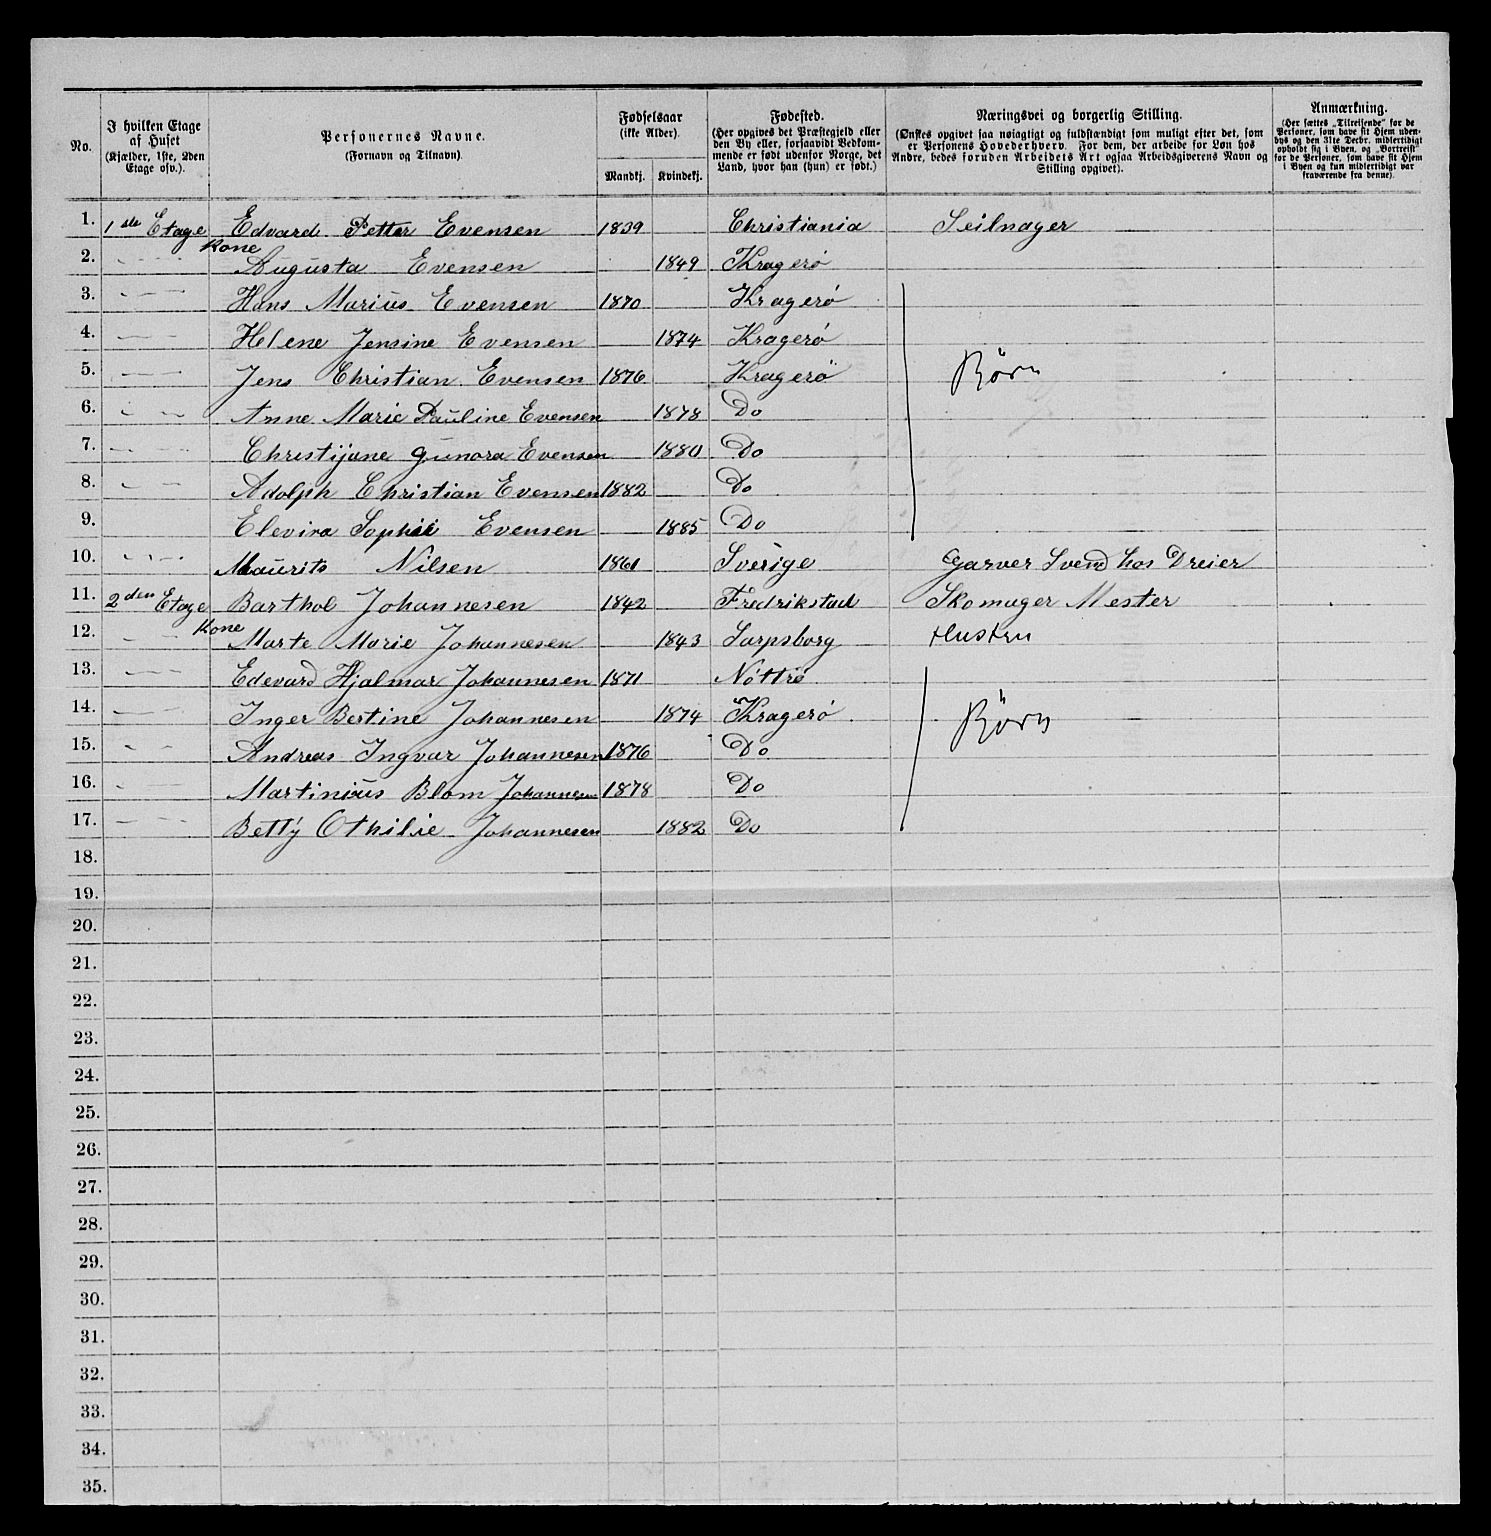 No. | I hvilken Etage af Huset (Kjælder, 1ste, 2den Etage osv.). | Personernes Navne. (Fornavn og Tilnavn). | Fødselsaar (ikke Alder). Mandkj. | Kvindekj. | Fødested. (Her opgives det Præstegjeld eller den By eller, forsaavidt Vedkommende er født udenfor Norge, det Land, hvor han (hun) er født.) | Næringsvei og borgerlig Stilling. (Ønskes opgivet saa nøiagtigt og fuldstændigt som muligt efter det, som er Personens Hovederhverv. For dem, der arbeide for Løn hos Andre, bedes foruden Arbeidets Art ogsaa Arbeidsgiverens Navn og Stilling opgivet). | Anmærkning. (Her sættes „Tilreisende" for de Personer, som have sit Hjem udenbys og den 31te Decbr. midlertidigt opholdt sig i Byen, og „Bortreist" for de Personer, som have sit Hjem i Byen og kun midlertidigt var fraværende fra denne).
1. 1ste Etage Edvard Petter Evensen 1839 Christiania Seilmager
2. Kone Augusta Evensen 1849 Kragerö
3. Hans Marius Evensen 1870 Kragerö
4. Helene Jensine Evensen 1874 Kragerö
5. Jens Christian Evensen 1876 Kragerö Börn
6. Anne Marie Pauline Evensen 1878 Do
7. Christijane Gunora Evensen 1880 Do
8. Adolph Christian Evensen 1882 Do
9. Elevira Sophie Evensen 1885 Do
10. Maurits Nilsen 1861 Sverige Garver Svend hos Dreier
11. 2den Etage Barthol Johannesen 1842 Fredrikstad Skomager Mester
12. Kone Marte Marie Johannesen 1843 Sarpsborg Hustru
13. Edevard Hjalmar Johannesen 1871 Nöttrö
14. Inger Bertine Johannesen 1874 Kragerö Börn
15. Andreas Ingvar Johannesen 1876 Do
16. Martinius Blom Johannesen 1878 Do
17. Betty Othilie Johannesen 1882 Do
18.
19.
20.
21.
22.
23.
24.
25.
26.
27.
28.
29.
30.
31.
32.
33.
34.
35.